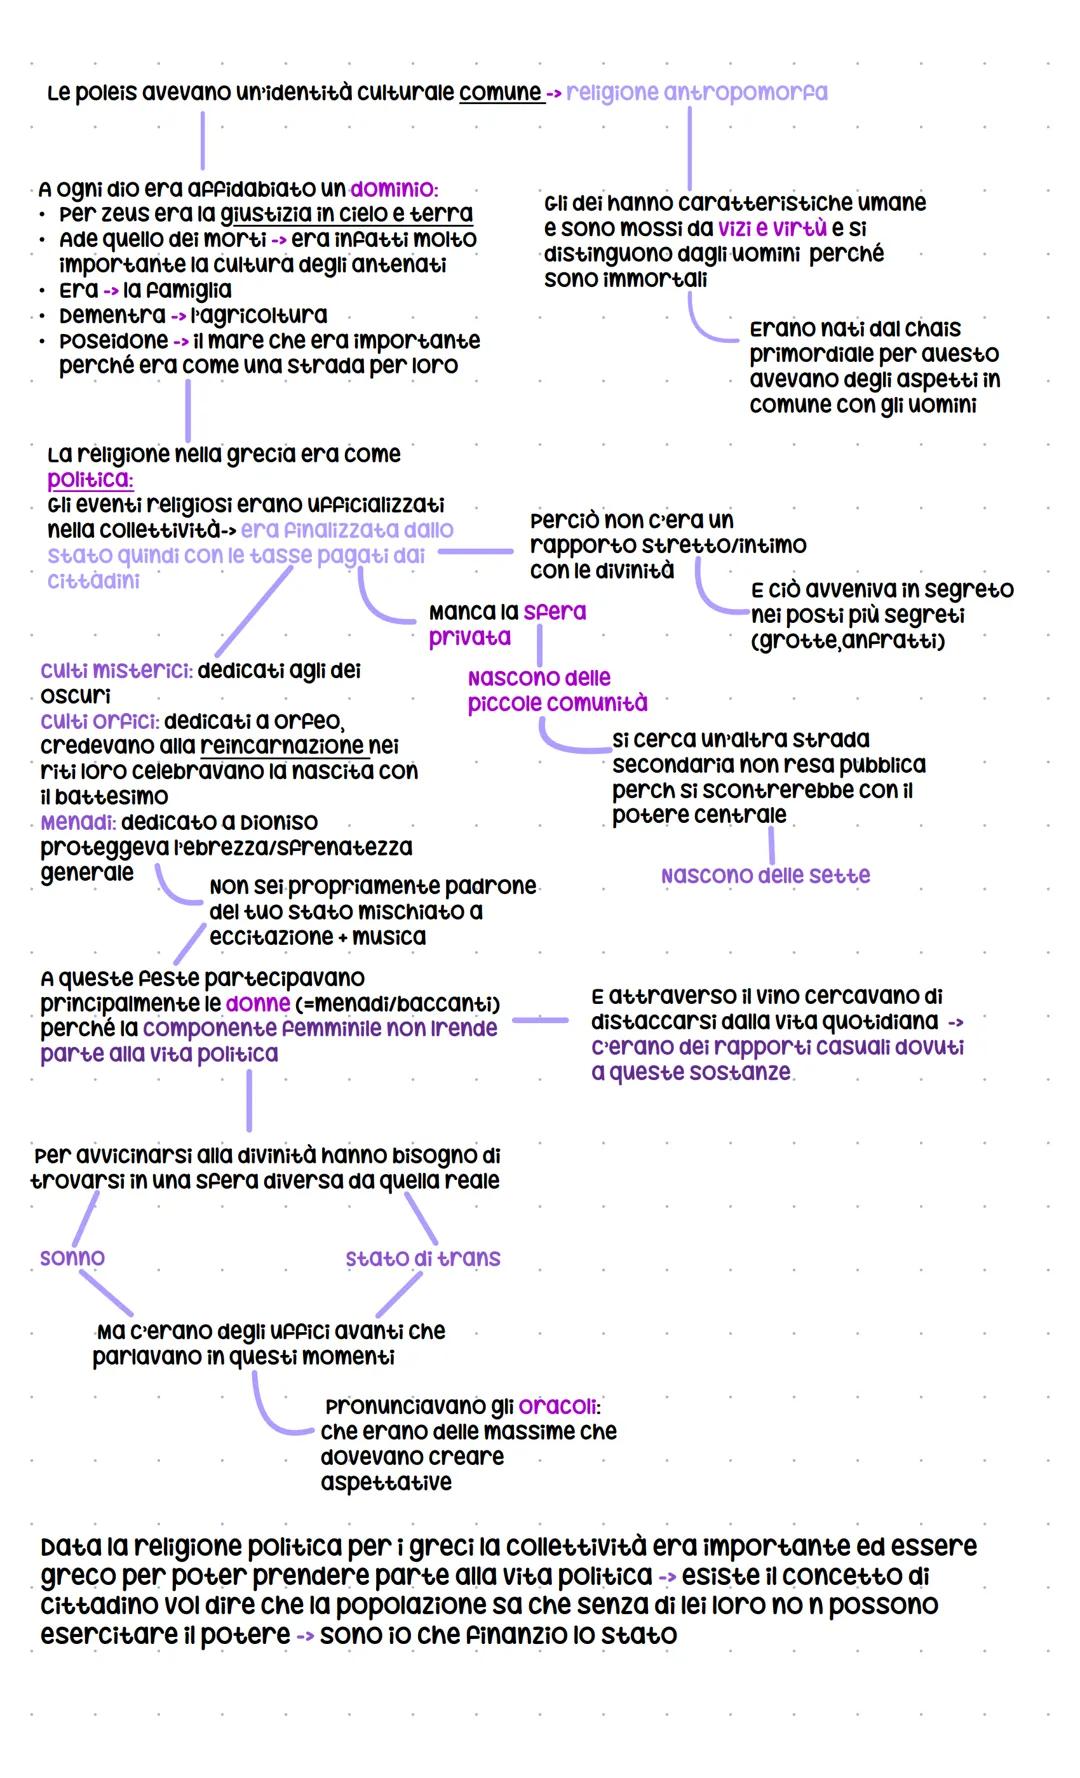 Le poleis avevano un'identità culturale comune -> religione antropomorfa
A ogni dio era affidabiato un dominio:
• Per zeus era la giustizia in cielo e terra
• Ade quello dei morti -> era infatti molto
importante la cultura degli antenati
• Era -> la famiglia
• Dementra -> l'agricoltura
• Poseidone -> il mare che era importante
perché era come una strada per loro
Gli dei hanno caratteristiche umane
e sono mossi da vizi e virtù e si
distinguono dagli uomini perché
sono immortali
Erano nati dal chais
primordiale per auesto
avevano degli aspetti in
comune con gli uomini
La religione nella grecia era come
politica:
Gli eventi religiosi erano ufficializzati
nella collettività-> era finalizzata dallo
stato quindi con le tasse pagati dai
cittadini
Perciò non c'era un
rapporto stretto/intimo
con le divinità
E ciò avveniva in segreto
nei posti più segreti
(grotte,anfratti)
Manca la sfera
privata
Nascono delle
piccole comunità
Si cerca un'altra strada
secondaria non resa pubblica
perch si scontrerebbe con il
potere centrale
Nascono delle sette
Culti misterici: dedicati agli dei
oscuri
Culti orfici: dedicati a orfeo,
credevano alla reincarnazione nei
riti loro celebravano la nascita con
il battesimo
Menadi: dedicato a Dioniso
proteggeva l'ebrezza/sfrenatezza
generale
Non sei propriamente padrone
del tuo stato mischiato a
eccitazione + musica
A queste feste partecipavano
principalmente le donne (=menadi/baccanti)
perché la componente femminile non lrende
parte alla vita politica
E attraverso il vino cercavano di
distaccarsi dalla vita quotidiana ->
c'erano dei rapporti casuali dovuti
a queste sostanze
Per avvicinarsi alla divinità hanno bisogno di
trovarsi in una sfera diversa da quella reale
Sonno
Stato di trans
Ma c'erano degli uffici avanti che
parlavano in questi momenti
Pronunciavano gli oracoli:
che erano delle massime che
dovevano creare
aspettative
Data la religione politica per i greci la collettività era importante ed essere
greco per poter prendere parte alla vita politica -> esiste il concetto di
cittadino vol dire che la popolazione sa che senza di lei loro no n possono
esercitare il potere -> sono io che finanzio lo stato